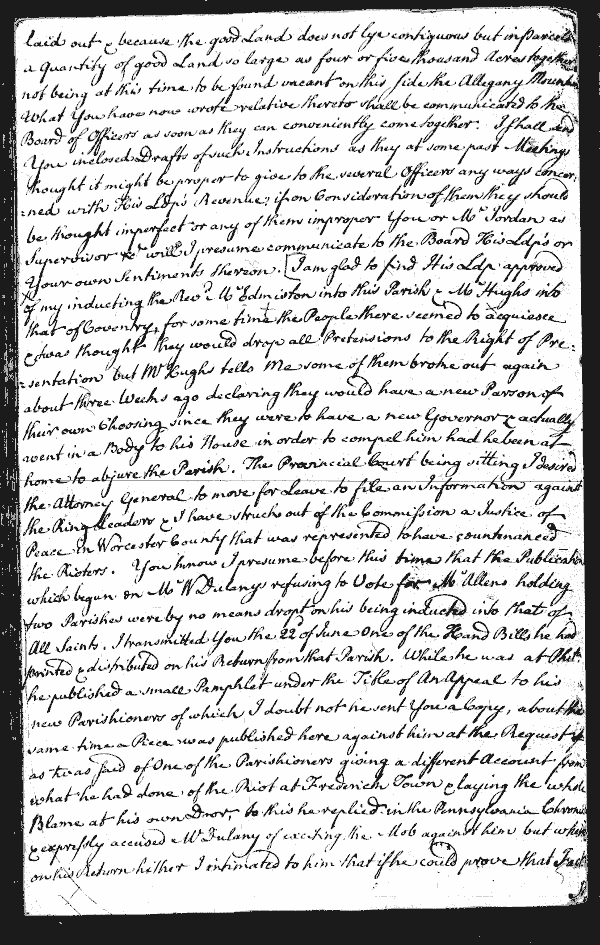 laid out & because the good Land does not lye contiguous but in parcels
a Quantity of good Land so large as four or five thousand Acres together
not being at this time to be found vacant on this side the Allegany Mountn
What You have now wrote relative thereto shall be communicated to the
Board of Officers as soon as they can conveniently come together. I shall send
You inclosed Drafts of such Instructions as they at some past Meetings
thought it might be proper to give to the several Officers any ways concer
=ned with His Ldp's Revenue; if on Consideration of them they should
be thought imperfect or any of them improper You or Mr Jordan as
Supervisor &c will I presume communicate to the Board His Ldp's or
Your own Sentiments thereon. [I am glad to find His Ldp approved
of my inducting the Revd Mr Edmiston into this Parish & Mr Hughs into
that of Coventry, for some time the People there seemed to acquiesce
& twas thought they would drop all Pretensions to the Right of Pre=
=sentation but Mr Hughs tells me some of them broke out again
about three Weeks ago declaring they would have a new Parson of
their own Choosing since they were to have a new Governor & actually
went in a Body to his House in order to compel him had he been at
home to abjure the Parish. The Provincial Court being sitting I desired
the Attorney General to move for Leave to file an Information against
the Ring Leaders & I have struck out of the Commission a Justice of
Peace in Worcester County that was represented to have countenanced
the Rioters. You know I presume before this time that the Publication
which begun on Mr W Dulanys refusing to Vote for Mr Allens holding
two Parishes were by no means dropt on his being inducted into that of
All Saints. I transmitted You the 22d of June One of the Hand Bills he had
printed & distributed on his Return from that Parish. While he was at Phila
he published a small Pamphlet under the Title of An Appeal to his
new Parishioners of which I doubt not he sent You a Copy, about the
same time a Piece was published here against him at the Request
as twas said of One of the Parishioners giving a different Account from
what he had done of the Riot at Frederick Town & laying the whole
Blame at his own Door, to this he replied in the Pennsylvania Chronicle
& expressly accused Mr Dulany of exciting the Mob against him but when
on his Return hither I intimated to him that if he could prove that Fact